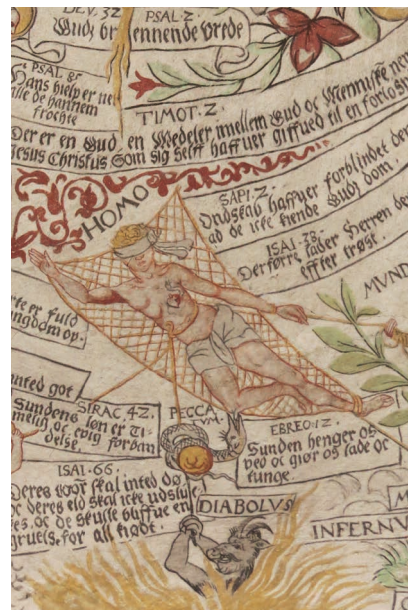 PSAL. 2.
Gudz brennende vrede
PSAL. 8
Hans hielp er
alle de hannem
frochte
TIMOT. 2.
Der er en Gud, en Medeler, mellem Gud og Menniske
Jesus Christus Som sig selff haffuer giffued til en forlos
HOMO
SAPI. 2.
Ondskab haffuer forblindet den
ad de icke kiende Gudz dom.
ISAI. 28.
Der førre, lader Herren de
effter trøst.
MVND
er fuld
ngdom op.
inted got
SIRAC 42.
Sundens løn er
oc evig forban
delse.
PECCA
TVM.
EBREO. 12.
Sunden henger os
ved oc giør os lade oc
tunge.
ISAI. 66.
Deres skal inted dø,
oc deres eld skal icke udsluc
oc de skulle bliffue en
gruels. for all kiødt.
DIABOLVS
INFERNV